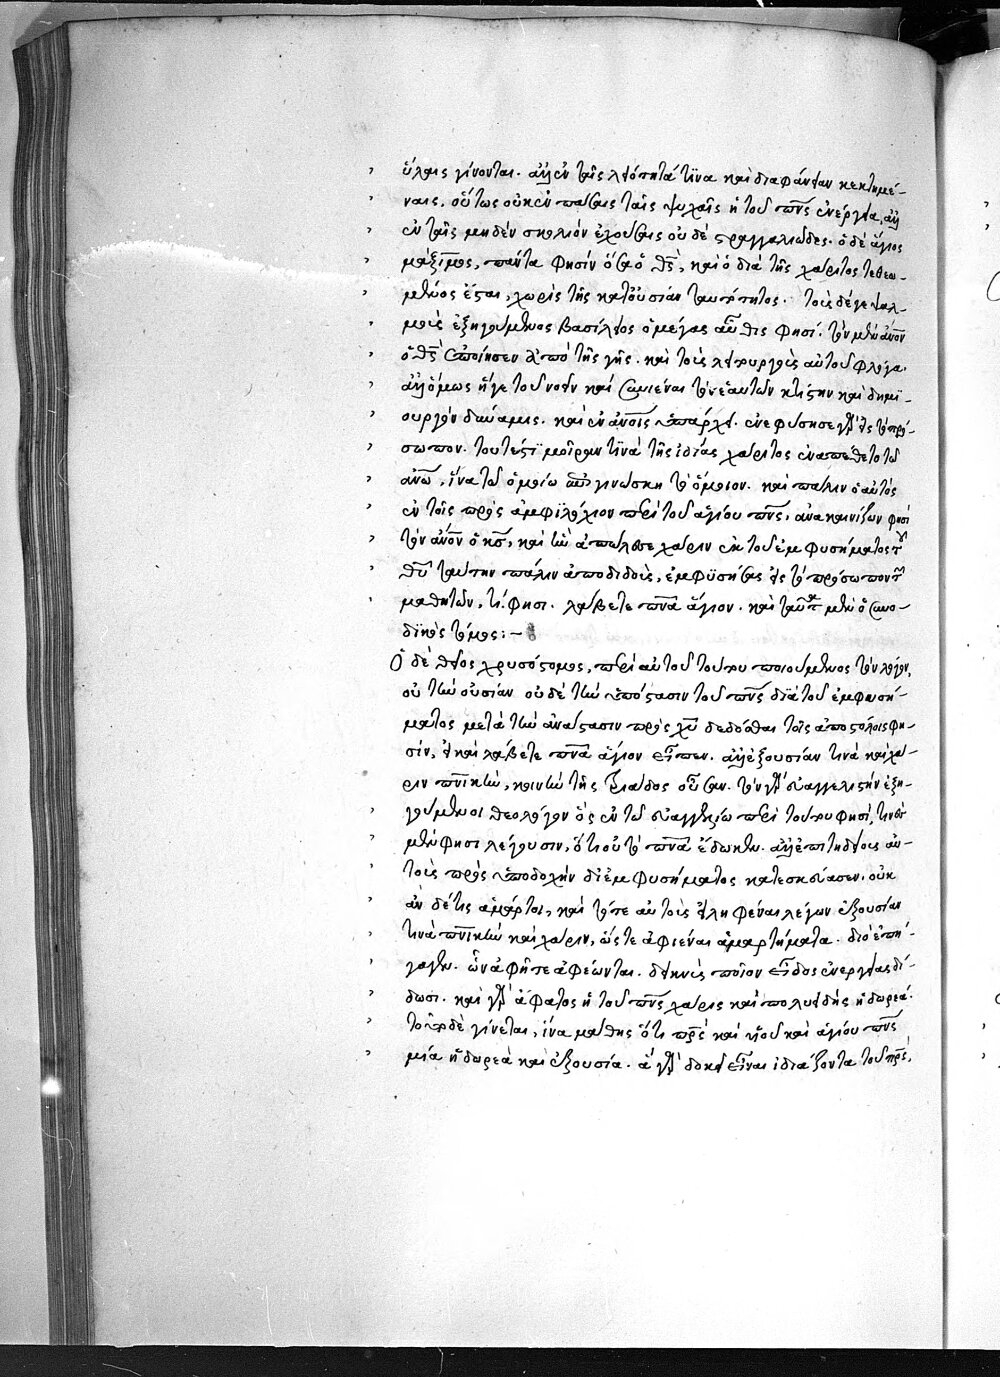 ὕλαις γίνονται. ἀλλ' ἐν ταῖς λειότητά τινα καὶ διαφάνειαν κεκτημέ-
ναις, οὕτως οὐκ ἐν πάσαις ταῖς ψυχαῖς ἡ τοῦ πνς ἐνέργεια, ἀλλ'
ἐν ταῖς μηδὲν σκολιὸν ἐχούσαις οὐδὲ στραγγαλιῶδες. ὁ δὲ ἅγιος
μάξιμος, πάντα φησὶν ὅσα ὁ θς, καὶ ὁ διὰ τῆς χάριτος τεθεω-
μένος ἔσται, χωρὶς τῆς κατουσίαν ταυτότητος. τοὺς δέ γε ψαλ-
μοὺς ἐξηγούμενος βασίλειος ὁ μέγας αὖθις φησί. τὸν μὲν ἄνον
ὁ θς ἐποίησεν ἀπὸ τῆς γῆς. καὶ τοὺς λειτουργοὺς αὐτοῦ φλόγα.
ἀλλ' ὅμως ἥγε τοῦ νοεῖν καὶ συνιέναι τὸν ἑαυτῶν κτίστην καὶ δημι-
ουργὸν δύναμις. καὶ ἐν ἀνοις ὑπάρχει. ἐνεφύσησε γὰρ εἰς τὸ πρό-
σωπον. τουτέστι μοῖράν τινα τῆς ἰδίας χάριτος ἐναπέθετο τῶ
ἀνω, ἵνα τῶ ὁμοίω ἐπιγινώσκη τὸ ὅμοιον. καὶ πάλιν ὁ αὐτὸς
ἐν τοῖς πρὸς ἀμφιλόχιον περὶ τοῦ ἁγίου πνς, ἀνακαινίζων φησὶ
τὸν ἄνον ὁ κς, καὶ ἣν ἀπώλεσε χάριν ἐκ τοῦ ἐμφυσήματος τοῦ
θυ ταύτην πάλιν ἀποδιδοὺς, ἐμφυσήσας εἰς τὸ πρόσωπον τῶν
μαθητῶν, τί φησι. λάβετε πνα ἅγιον. καὶ ταῦτα μὲν ὁ συνο-
δικὸς τόμος:-
Ὁ δὲ θεῖος χρυσόστομος, περὶ αὐτοῦ τούτου ποιούμενος τὸν λόγον,
οὐ τὴν οὐσίαν οὐδὲ τὴν ὑπόστασιν τοῦ πνς διὰ τοῦ ἐμφυσή-
ματος μετὰ τὴν ἀνάστασιν πρὸς χυ δεδόσθαι τοῖς ἀποστόλοις φη-
σίν, εἰ καὶ λάβετε πνα ἅγιον εἶπεν. ἀλλ' ἐξουσίαν τινὰ καὶ χά-
ριν πνικὴν, κοινὴν τῆς τριάδος οὖσαν. τὸν γὰρ εὐαγγελιστὴν ἐξη-
γούμενοι θεολόγον ὃς ἐν τῶ εὐαγγελίω περὶ τούτου φησί, τινὲς
μέν φησι λέγουσιν, ὅτι οὐ τὸ πνα ἔδωκεν. ἀλλ' ἐπιτηδείους αὐ-
τοὺς πρὸς ὑποδοχὴν δι' ἐμφυσήματος κατεσκεύασεν. οὐκ
ἂν δέ τις ἁμάρτοι, καὶ τότε αὐτοὺς εἰληφέναι λέγων ἐξουσίαν
τινὰ πνικὴν καὶ χάριν, ὥστε ἀφιέναι ἁμαρτήματα. διὸ ἐπή-
γαγεν. ὧν ἀφῆτε ἀφέωνται. δεικνὺς ποῖον εἶδος ἐνεργείας δί-
δωσι. καὶ γὰρ ἄφατος ἡ τοῦ πνς χάρις καὶ πολυειδὴς ἡ δωρεά.
τοῦτο δὲ γίνεται, ἵνα μάθης ὅτι πρς καὶ υἱοῦ καὶ ἁγίου πνς
μία ἡ δωρεὰ καὶ ἐξουσία. ἃ γὰρ δοκεῖ εἶναι ἰδιάζοντα τοῦ πρς,